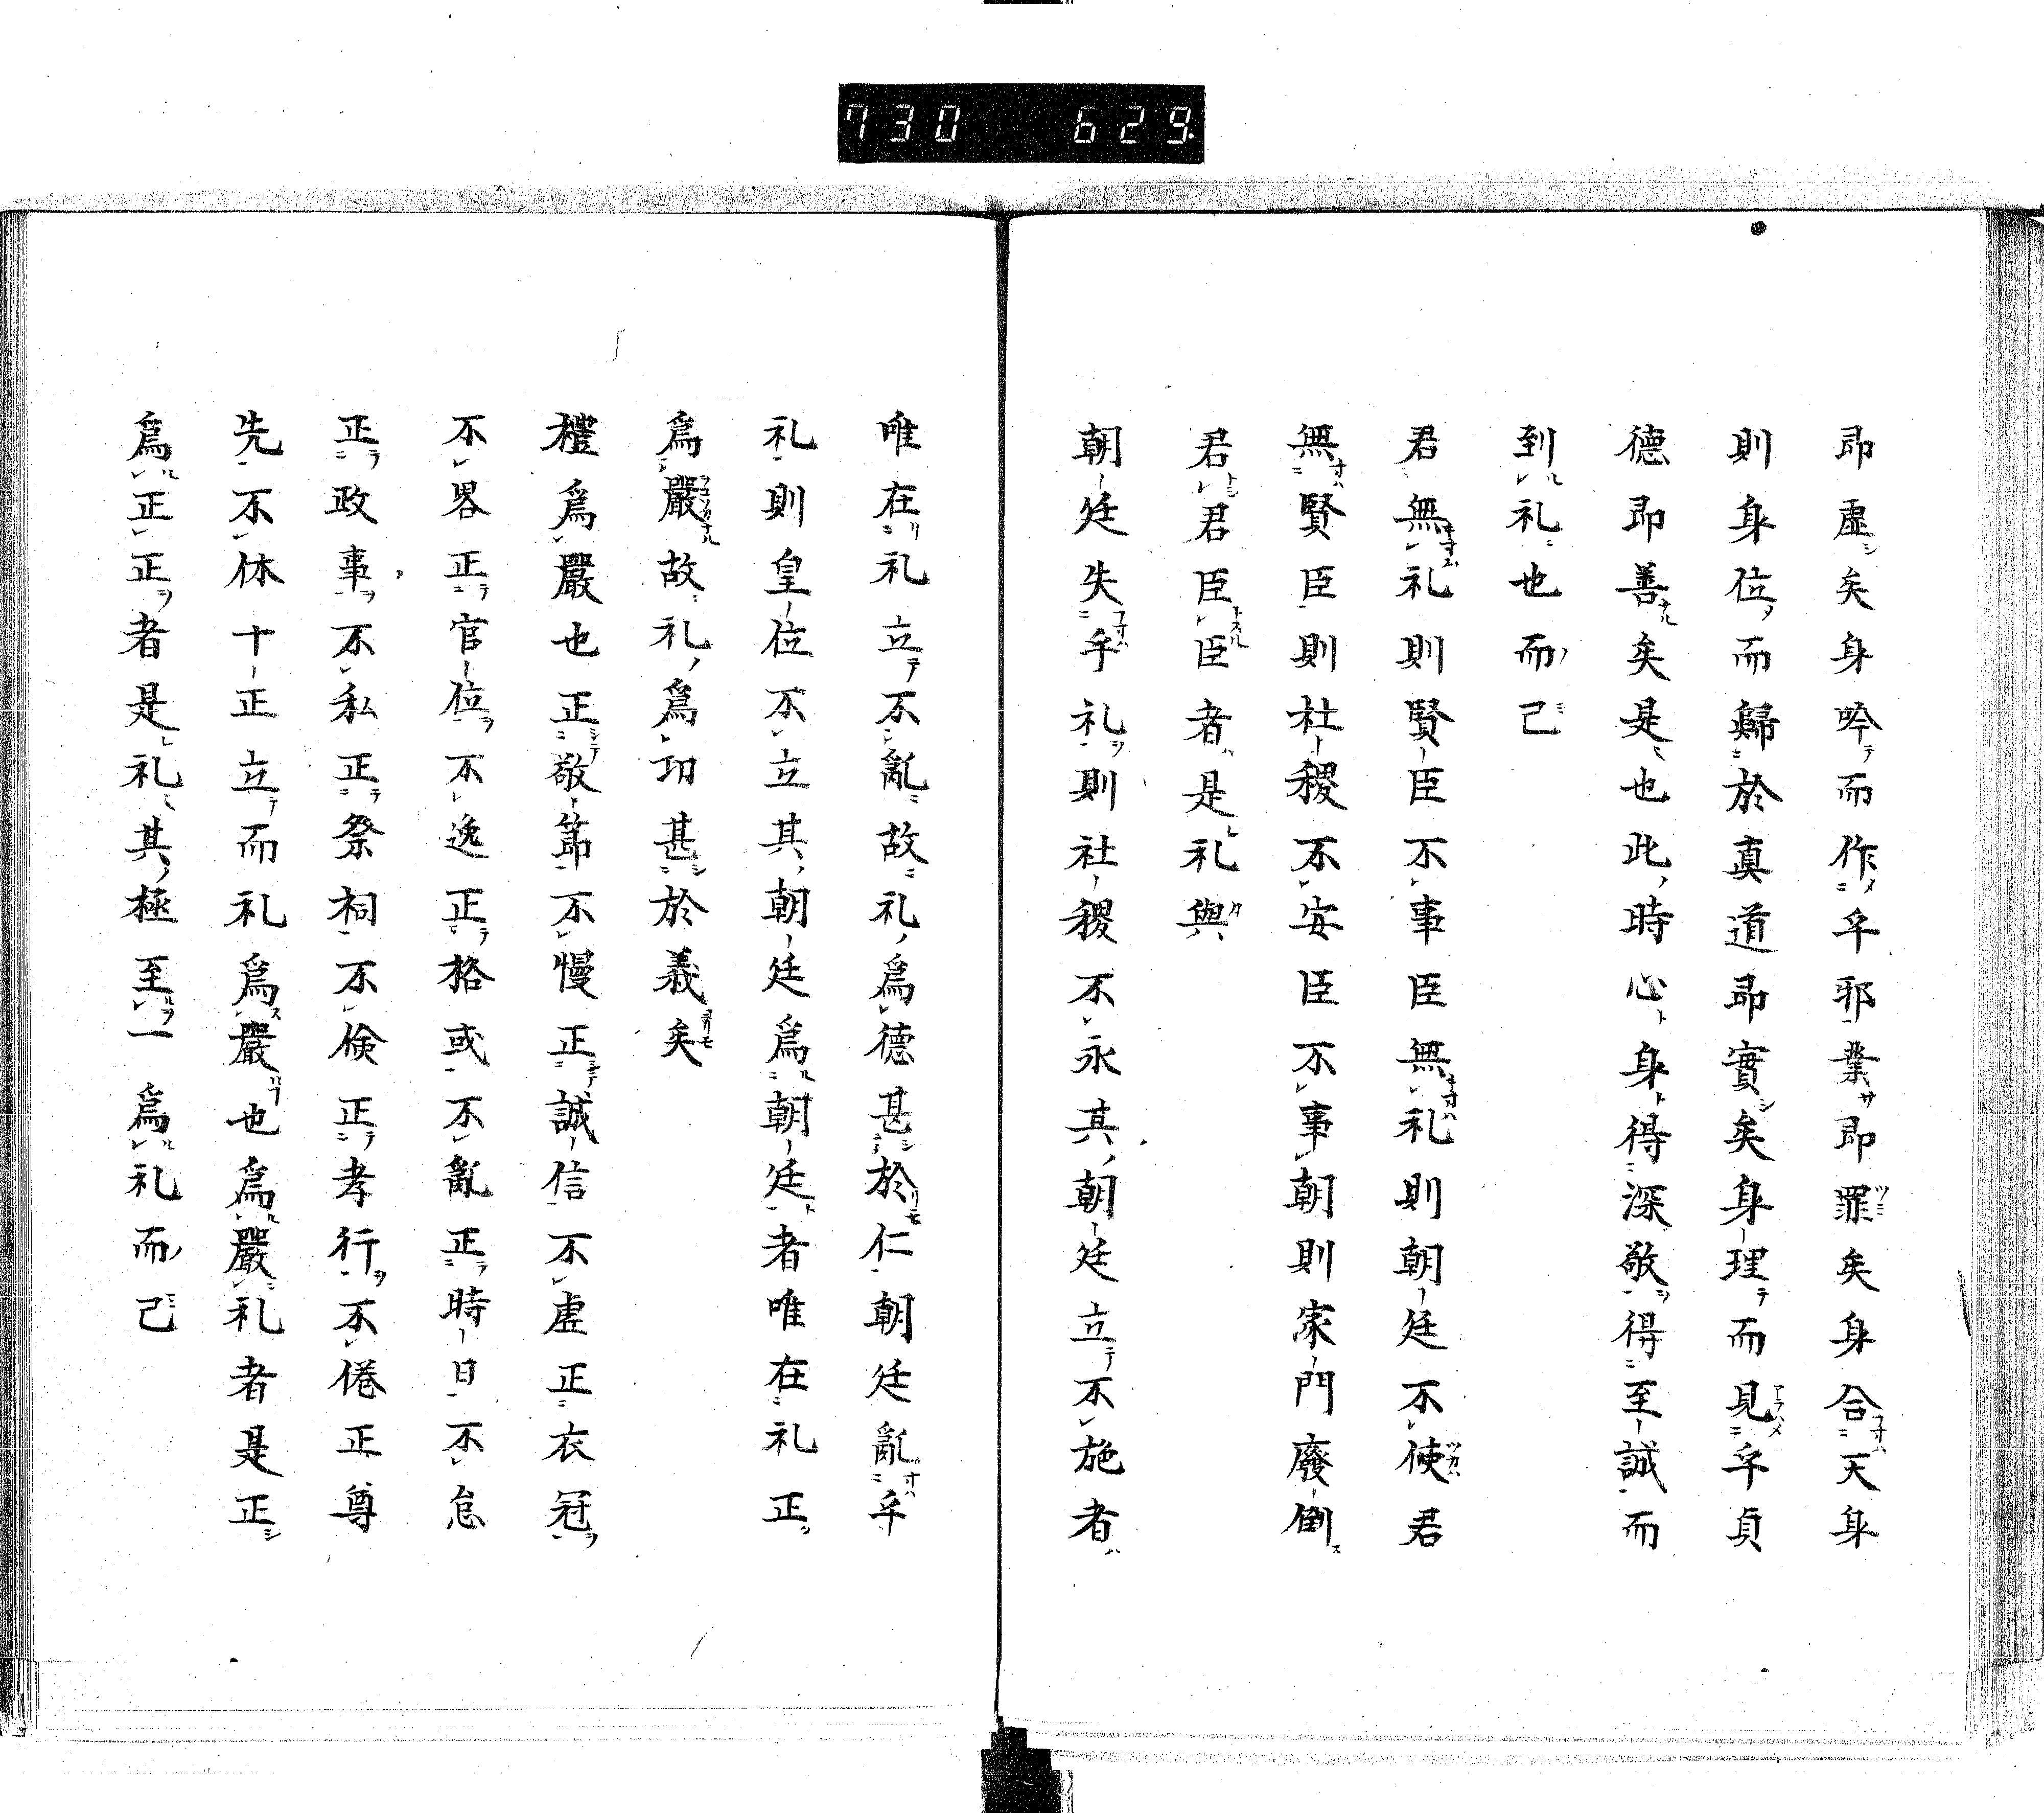 730 629
即虚矣身吟而作乎邪業即罪矣身合天身
則身位而歸於真道即實矣身理而見乎貞
德即善矣是也此時心身得深敬得至誠而
到礼也而已
君無礼則賢臣不事臣無礼則朝廷不使君
無賢臣則社稷不安臣不事朝則家門廢倒
君君臣臣者是礼與
朝廷失乎礼則社稷不永其朝廷立不施者
唯在礼立不亂故礼為德甚於仁朝廷亂乎
礼則皇位不立其朝廷為朝廷者唯在礼正
為嚴故礼為功甚於義矣
禮為嚴也正敬節不慢正誠信不虚正衣冠
不畧正官位不逸正格式不亂正時日不怠
正政事不私正祭祠不倹正孝行不倦正尊
先不休十正立而礼為嚴也為嚴礼者是正
為正正者是礼其極至一為礼而已